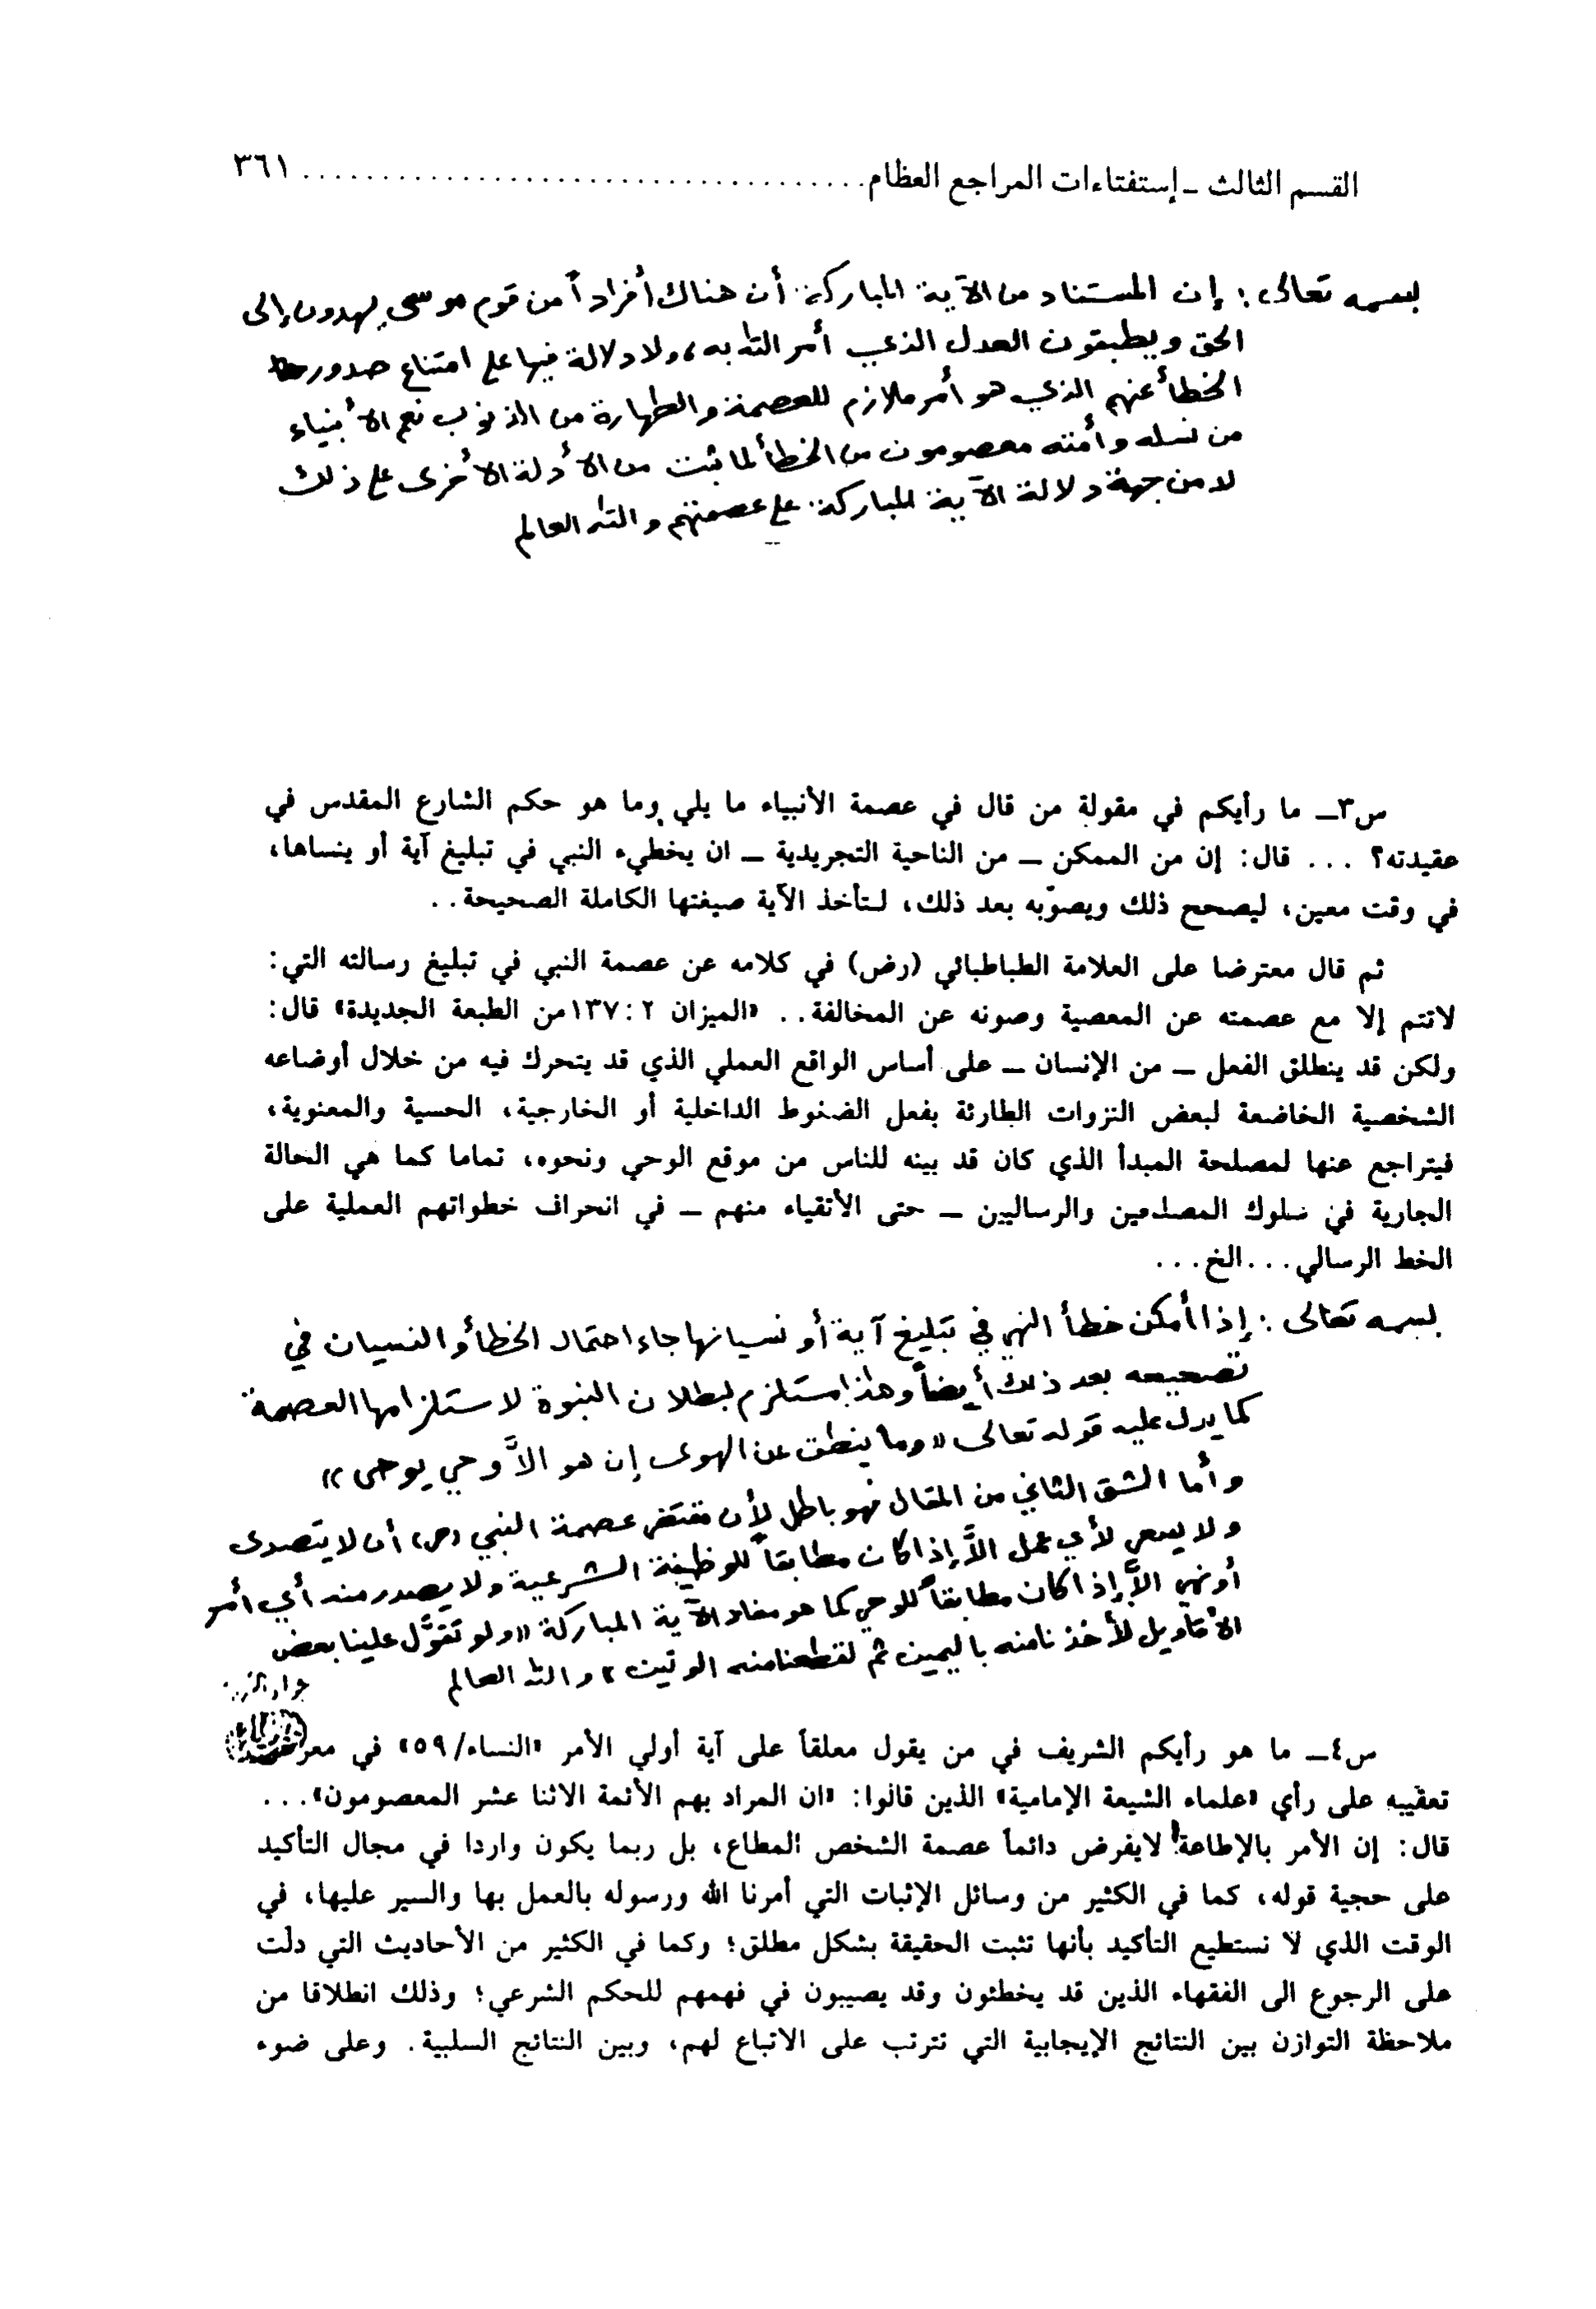 القسم الثالث ـ إستفتاءات المراجع العظام .................................... ٣٦١
بسمه تعالى: إن المستفاد من الآية المباركة أن هناك أفراداً من قوم موسى يهدون إلى
الحق ويطبقون العدل الذي أمر الله به، ولا دلالة فيها على امتناع صدور
الخطأ عنهم الذي هو أمر ملازم للعصمة والطهارة من الذنوب نعم الأنبياء
من نسله وأمته معصومون من الخطأ لما ثبت من الأدلة الأخرى على ذلك
لا من جهة دلالة الآية المباركة على عصمتهم والله العالم
س٣ـ ما رأيكم في مقولة من قال في عصمة الأنبياء ما يلي وما هو حكم الشارع المقدس في
عقيدته؟ ... قال: إن من الممكن ـ من الناحية التجريدية ـ ان يخطيء النبي في تبليغ آية أو ينساها،
في وقت معين، ليصحح ذلك ويصوّبه بعد ذلك، لتأخذ الآية صيغتها الكاملة الصحيحة..
ثم قال معترضا على العلامة الطباطبائي (رض) في كلامه عن عصمة النبي في تبليغ رسالته التي:
لاتتم إلا مع عصمته عن المعصية وصونه عن المخالفة.. «الميزان ٢: ١٣٧من الطبعة الجديدة» قال:
ولكن قد ينطلق الفعل ـ من الإنسان ـ على أساس الواقع العملي الذي قد يتحرك فيه من خلال أوضاعه
الشخصية الخاضعة لبعض النزوات الطارئة بفعل الضغوط الداخلية أو الخارجية، الحسية والمعنوية،
فيتراجع عنها لمصلحة المبدأ الذي كان قد بينه للناس من موقع الوحي ونحوه، تماما كما هي الحالة
الجارية في سلوك المصلحين والرساليين ـ حتى الأتقياء منهم ـ في انحراف خطواتهم العملية على
الخط الرسالي...الخ...
بسمه تعالى: إذا أمكن خطأ النبي في تبليغ آية أو نسيانها جاء احتمال الخطأ والنسيان في
تصحيحه بعد ذلك أيضاً وهذا مستلزم لبطلان النبوة لاستلزامها العصمة
كما يدل عليه قوله تعالى «وما ينطق عن الهوى إن هو إلاَّ وحي يوحى»
وأما الشق الثاني من المقال فهو باطل لأن مقتضى عصمة النبي (ص) أن لا يتصدى
ولا يسعى لأي عمل إلاَّ إذا كان مطابقاً للوظيفة الشرعية ولا يصدر منه أي أمر
أو نهي إلاَّ إذا كان مطابقاً للوحي كما هو مفاد الآية المباركة «ولو تقوَّل علينا بعض
الأقاويل لأخذنا منه باليمين ثم لقطعنا منه الوتين» والله العالم
س٤ـ ما هو رأيكم الشريف في من يقول معلقاً على آية أولي الأمر «النساء/٥٩» في معرض
تعقيبه على رأي «علماء الشيعة الإمامية» الذين قالوا: «ان المراد بهم الأئمة الاثنا عشر المعصومون»...
قال: إن الأمر بالإطاعة لايفرض دائماً عصمة الشخص المطاع، بل ربما يكون واردا في مجال التأكيد
على حجية قوله، كما في الكثير من وسائل الإثبات التي أمرنا الله ورسوله بالعمل بها والسير عليها، في
الوقت الذي لا نستطيع التأكيد بأنها تثبت الحقيقة بشكل مطلق؛ وكما في الكثير من الأحاديث التي دلّت
على الرجوع الى الفقهاء الذين قد يخطئون وقد يصيبون في فهمهم للحكم الشرعي؛ وذلك انطلاقا من
ملاحظة التوازن بين النتائج الإيجابية التي تترتب على الاتباع لهم، وبين النتائج السلبية. وعلى ضوء